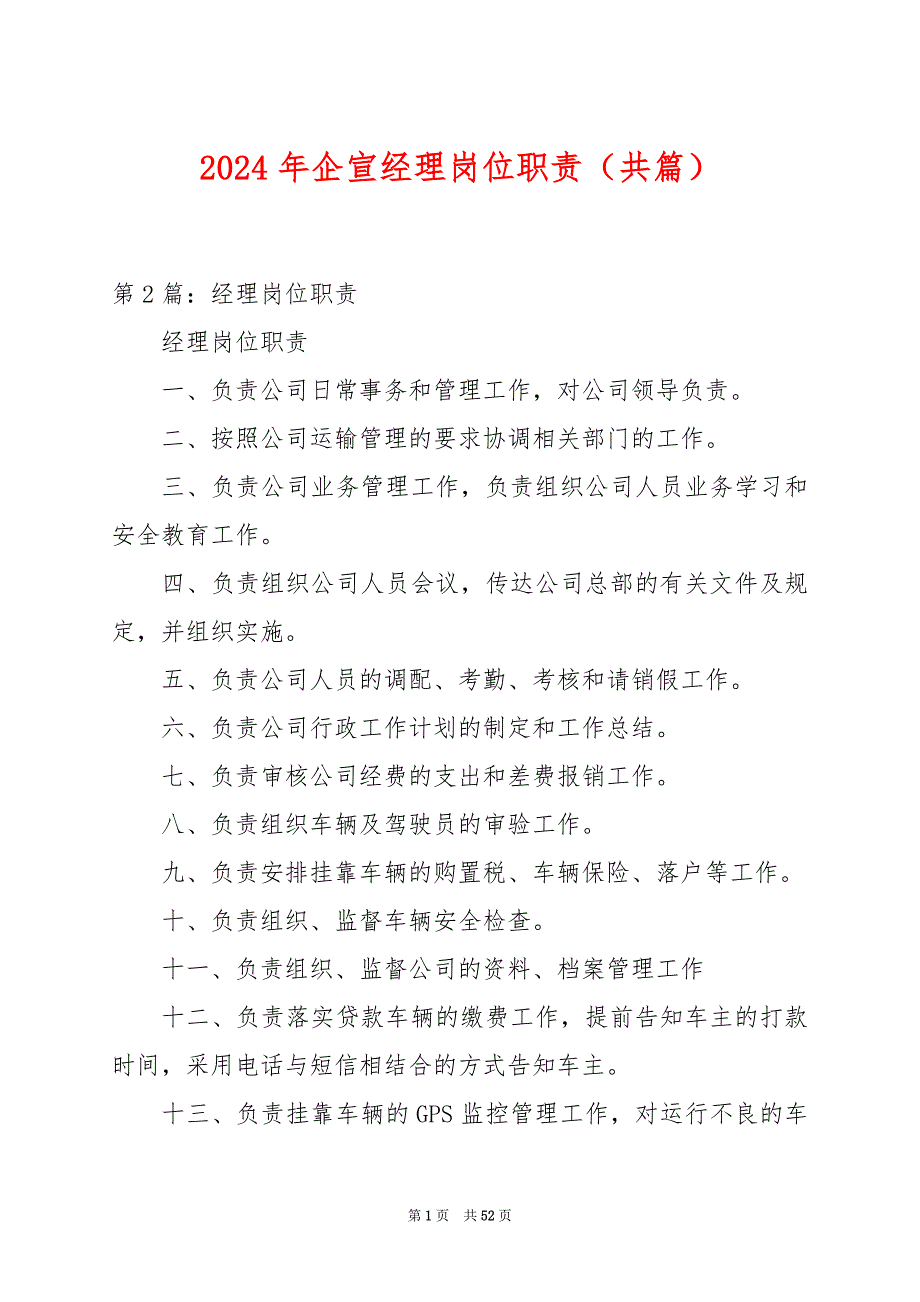 2024 年企宣经理岗位职责（共篇）
第 2 篇：经理岗位职责
经理岗位职责
一、负责公司日常事务和管理工作，对公司领导负责。
二、按照公司运输管理的要求协调相关部门的工作。
三、负责公司业务管理工作，负责组织公司人员业务学习和
安全教育工作。
四、负责组织公司人员会议，传达公司总部的有关文件及规
定，并组织实施。
五、负责公司人员的调配、考勤、考核和请销假工作。
六、负责公司行政工作计划的制定和工作总结。
七、负责审核公司经费的支出和差费报销工作。
八、负责组织车辆及驾驶员的审验工作。
九、负责安排挂靠车辆的购置税、车辆保险、落户等工作。
十、负责组织、监督车辆安全检查。
十一、负责组织、监督公司的资料、档案管理工作
十二、负责落实贷款车辆的缴费工作，提前告知车主的打款
时间，采用电话与短信相结合的方式告知车主。
十三、负责挂靠车辆的 GPS 监控管理工作，对运行不良的车
第 1 页 共 52 页